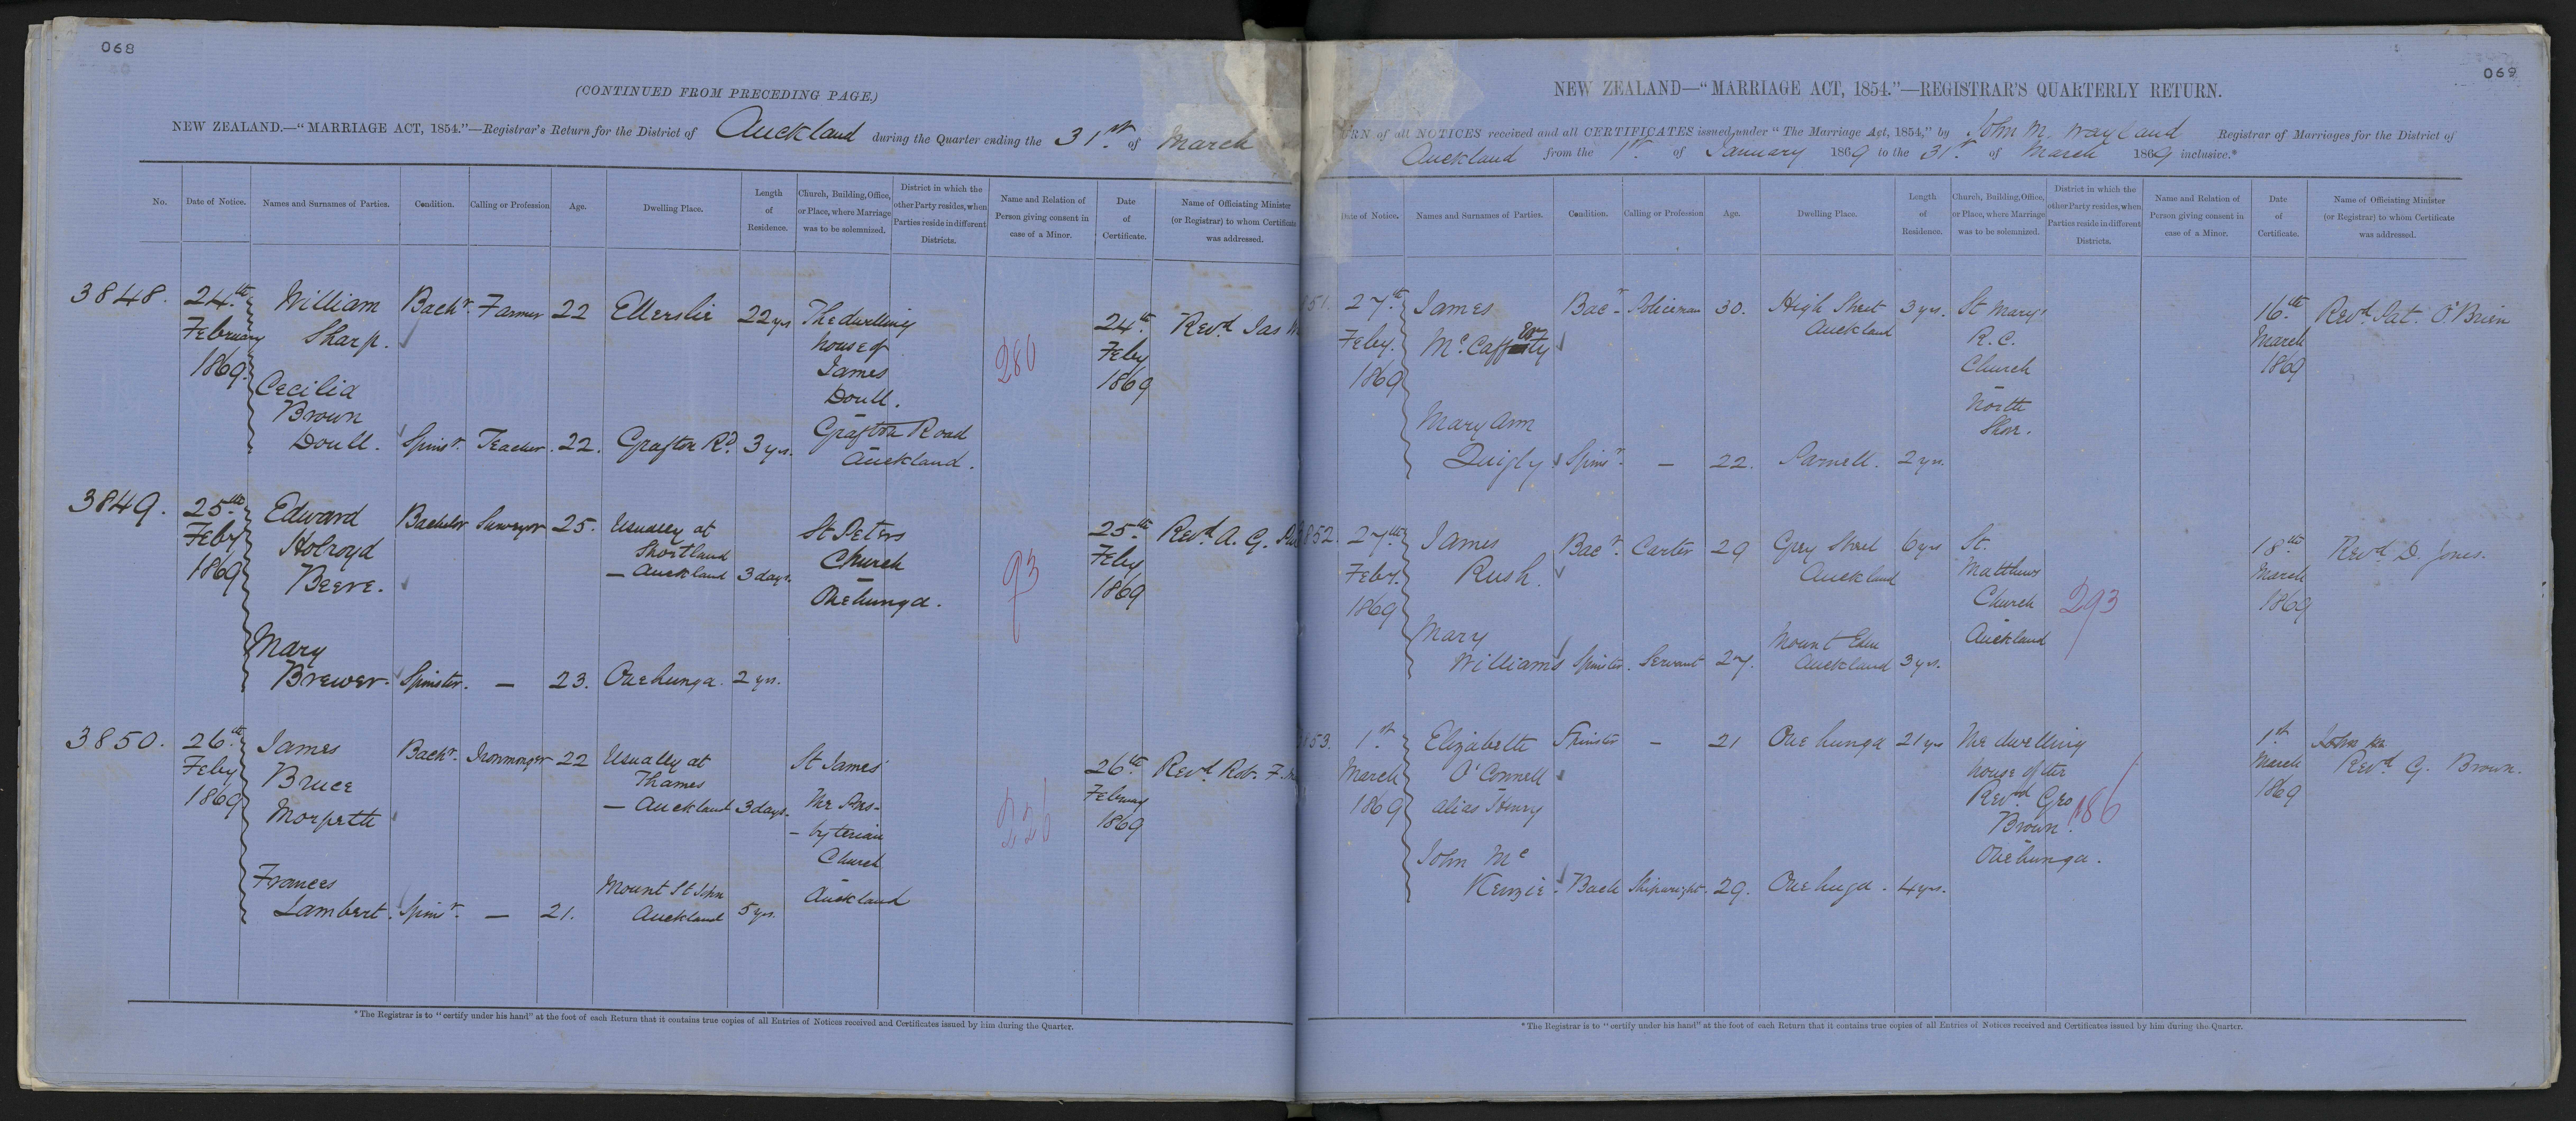 068
(CONTINUED FROM PRECEDING PAGE.)
NEW ZEALAND.—"MARRIAGE ACT, 1854."—Registrar's Return for the District of Auckland during the Quarter ending the 31st of March
No. Date of Notice. Names and Surnames of Parties. Condition. Calling or Profession Age. Dwelling Place. Length of Residence. Church, Building, Office, or Place, where Marriage was to be solemnized. District in which the other Party resides, when Parties reside in different Districts. Name and Relation of Person giving consent in case of a Minor. Date of Certificate. Name of Officiating Minister (or Registrar) to whom Certificate was addressed.
3848. 24th William Bachr. Farmer 22 Ellerslie 22 yrs The dwelling 24th Revd Jas
February Sharp. house of Feby
1869. James 1869
Cecilia Doull. 280
Brown Grafton Road
Doull. Spinsr. Teacher. 22. Grafton Rd. 3 yrs. Auckland.
3849. 25th Edward Bachelor Surveyor 25. Usually at St Peters 25th Revd A. G.
Feby Holroyd Shortland Church Feby
1869 Beere. — Auckland 3 days. Onehunga. 93 1869
Mary
Brewer. Spinster. — 23. Onehunga. 2 yrs.
3850. 26th James Bachr. Ironmonger 22 Usually at St James' 26th Revd Robt. F.
Feby Bruce Thames The Pres- February
1869 Morpeth — Auckland 3 days. -byterian 1869
Church
Frances Mount St John Auckland
Lambert. Spinr. — 21. Auckland 5 yrs.
*The Registrar is to "certify under his hand" at the foot of each Return that it contains true copies of all Entries of Notices received and Certificates issued by him during the Quarter.
069
NEW ZEALAND—"MARRIAGE ACT, 1854."—REGISTRAR'S QUARTERLY RETURN.
URN of all NOTICES received and all CERTIFICATES issued under "The Marriage Act, 1854," by John M. Wayland Registrar of Marriages for the District of
Auckland from the 1st of January 1869 to the 31st of March 1869 inclusive.*
Date of Notice. Names and Surnames of Parties. Condition. Calling or Profession Age. Dwelling Place. Length of Residence. Church, Building, Office, or Place, where Marriage was to be solemnized. District in which the other Party resides, when Parties reside in different Districts. Name and Relation of Person giving consent in case of a Minor. Date of Certificate. Name of Officiating Minister (or Registrar) to whom Certificate was addressed.
851. 27th James Bacr. Policeman 30. High Street 3 yrs. St Marys' 16th Revd. Pat. O'Brien
Feby. McCafferty Auckland R.C. March
1869 Church 1869
North
Mary Ann Shore.
Quigly Spinr. — 22. Parnell. 2 yrs.
852. 27th James Bacr. Carter 29 Grey Street 6 yrs St. 18th Revd D. Jones.
Feby. Rush. Auckland Matthews March
1869 Church 293 1869
Mary Mount Eden Auckland
Williams Spinster. Servant 27. Auckland 3 yrs.
853. 1st Elizabeth Spinster — 21 Onehunga 21 yrs The dwelling 1st John
March O'Connell house of the March Revd. G. Brown.
1869 alias Henry Revnd Geo 186 1869
Brown.
John Mc Onehunga.
Kenzie. Bach Shipwright. 29. Onehuga. 4 yrs.
*The Registrar is to "certify under his hand" at the foot of each Return that it contains true copies of all Entries of Notices received and Certificates issued by him during the Quarter.